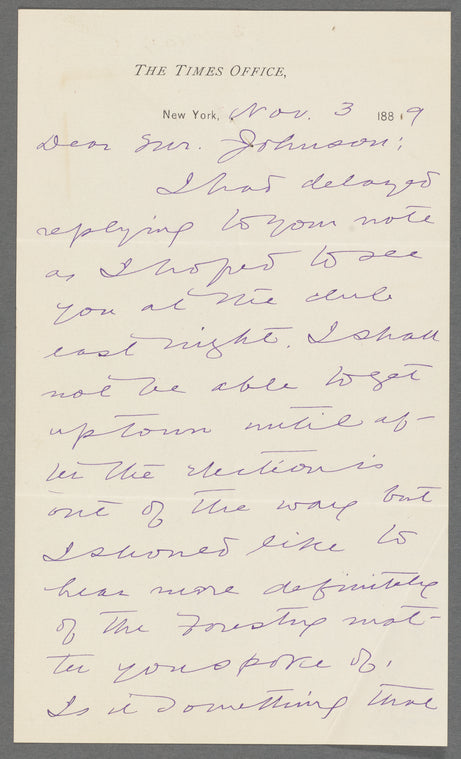 THE TIMES OFFICE,
New York, Nov. 3 1889
Dear Mr. Johnson:
I had delayed
replying to your note
as I hoped to see
you at the club
last night. I shall
not be able to get
uptown until af-
ter the election is
out of the way but
I should like to
hear more definitely
of the Forestry mat-
ter you spoke of.
Is it something that